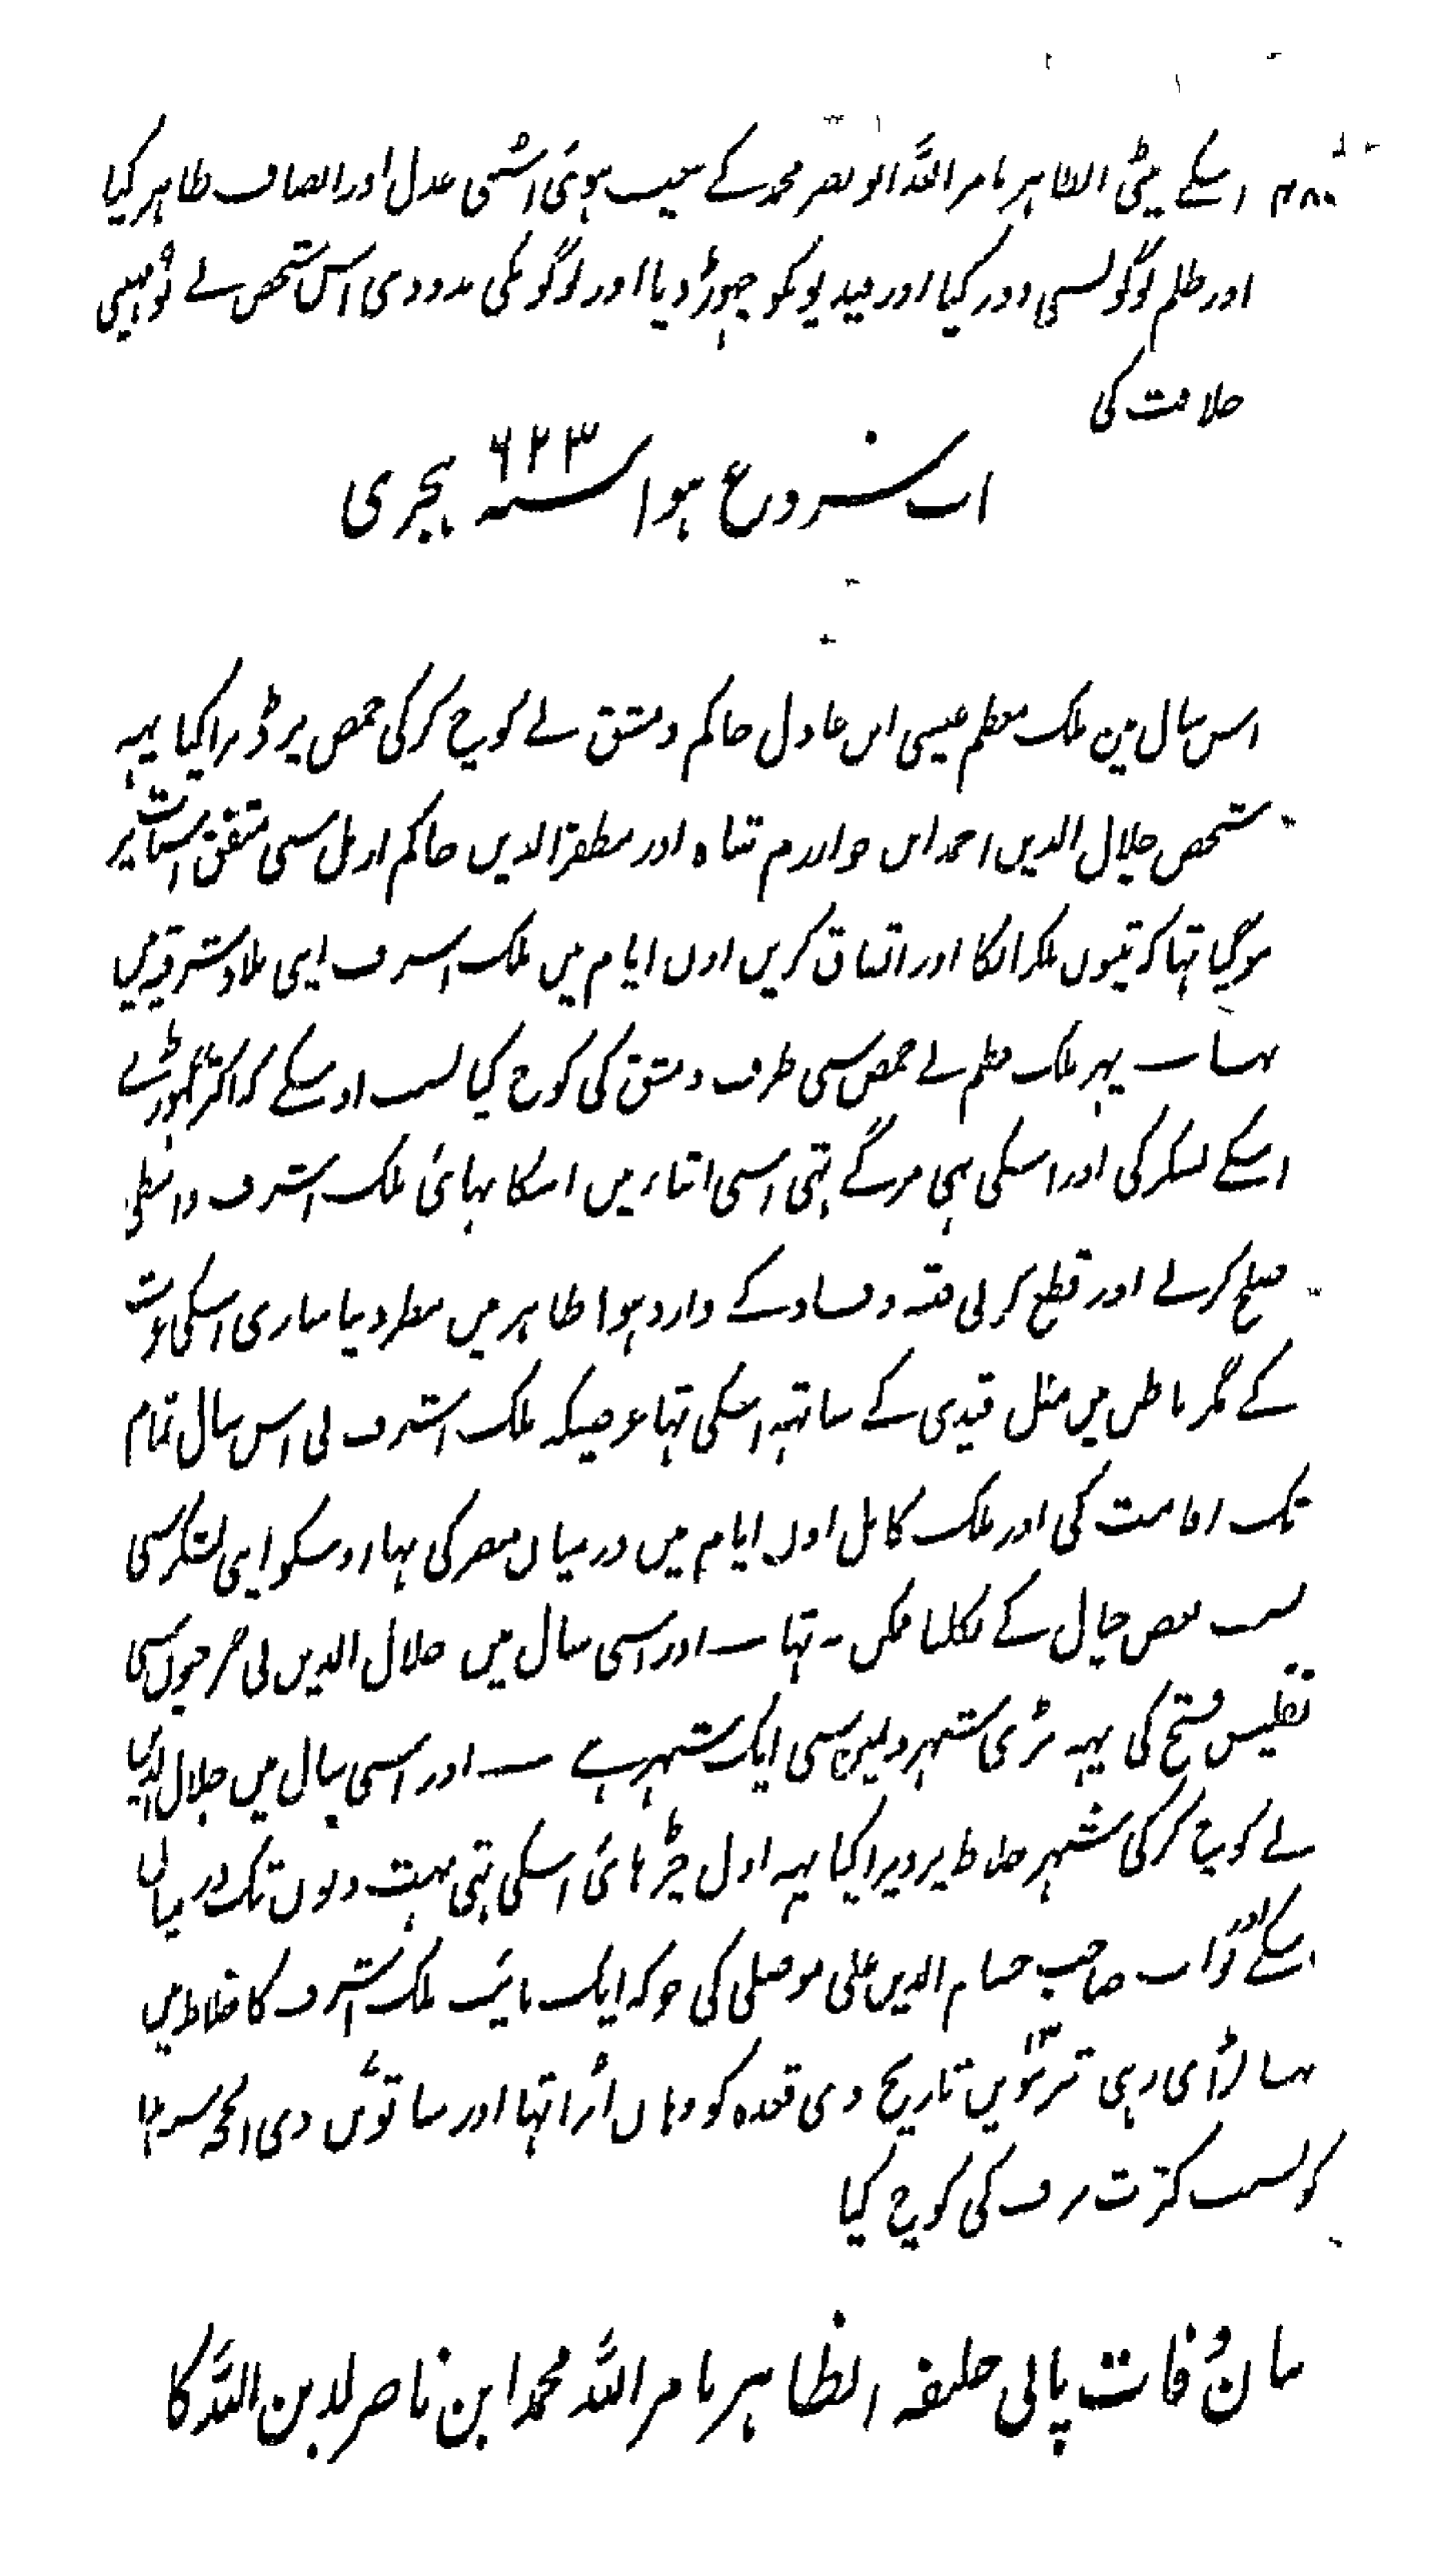 اسکے بیٹی الظاہر بامر اللہ ابو نصر محمد کے بیعت ہوئی اسمی عدل اور انصاف ظاہر کیا
اور ظلم لوگونسی دور کیا اور قیدیونکو چہوڑ دیا اور لوگونکی مدد دی اس شخص نے نو مہینی
خلافت کی
اب شروع ہوا سنہ ۶۲۳ ہجری
اس سال مین ملک معظم عیسی ابن عادل حاکم دمشق نے کوچ کرکی حمص پر ڈیرا کیا یہہ
شخص جلال الدین احمد ابن خوارزم شاہ اور مظفر الدین حاکم اربل سی متفق اسبات پر
ہوگیا تہا کہ تینوں ملکر انکا اور اتفاق کریں اون ایام میں ملک اشرف اپنی بلاد شرقیہ میں
تہا ۔ پہر ملک معظم نے حمص سی طرف دمشق کی کوچ کیا بسبب اوسکے کہ اکثر گہوڑے
اسکے لشکر کی اور اسکی بہی مرگئے تہی اسی اثناء میں اسکا بہائی ملک اشرف واسطی
صلح کرنے اور قطع کرنی فتنہ و فساد کے وارد ہوا ظاہر میں
کے مگر باطن میں مثل قیدی کے ساتہہ اسکی تہا غرضیکہ ملک اشرف نی اس سال تمام
تک اقامت کی اور ملک کامل اون ایام میں درمیان مصر کی تہا اوسکو اپنی لشکر سی
بسبب بعض خیال کے نکلنا ممکن نہ تہا ۔ اور اسی سال میں جلال الدین نی
تفلیس فتح کی یہہ بڑی شہرونمین سی ایک شہر ہے ۔ اور اسی سال میں جلال الدین
نے کوچ کرکی شہر خلاط پر ڈیرا کیا یہہ اول چڑہائی اسکی تہی بہت دنوں تک درمیان
اسکے اور نواب صاحب حسام الدین علی موصلی کی جو کہ ایک نائب ملک اشرف کا خلاط میں
تہا لڑائی رہی تیرہویں ۱۳ تاریخ ذی قعدہ کو وہاں اترا تہا اور ساتویں ذی الحجہ سنہ
کو بسبب کثرت برف کی کوچ کیا
بیان وفات پانی خلیفہ الظاہر بامر اللہ محمد ابن ناصر لدین اللہ کا